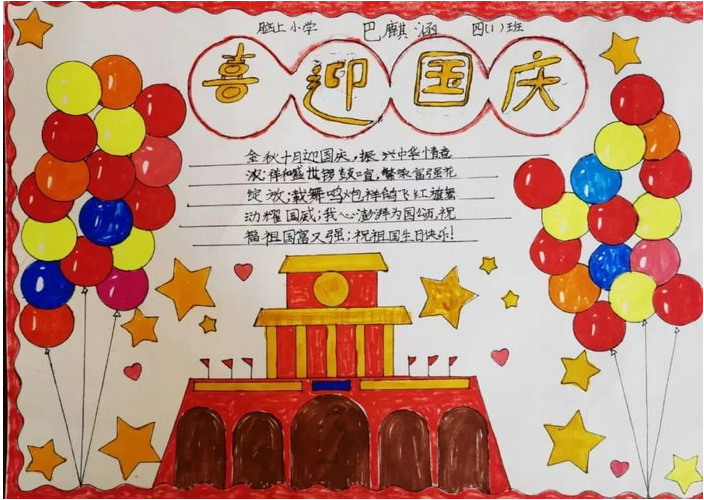 脑上小学 巴麒涵 四(1)班
喜迎国庆
金秋十月迎国庆,振兴中华情意
浓,祥和盛世锣鼓喧,繁荣富强花
绽放;载舞鸣炮祥鸽飞红旗飘
动耀国威;我心澎湃为国颂,祝
福祖国富又强;祝祖国生日快乐!